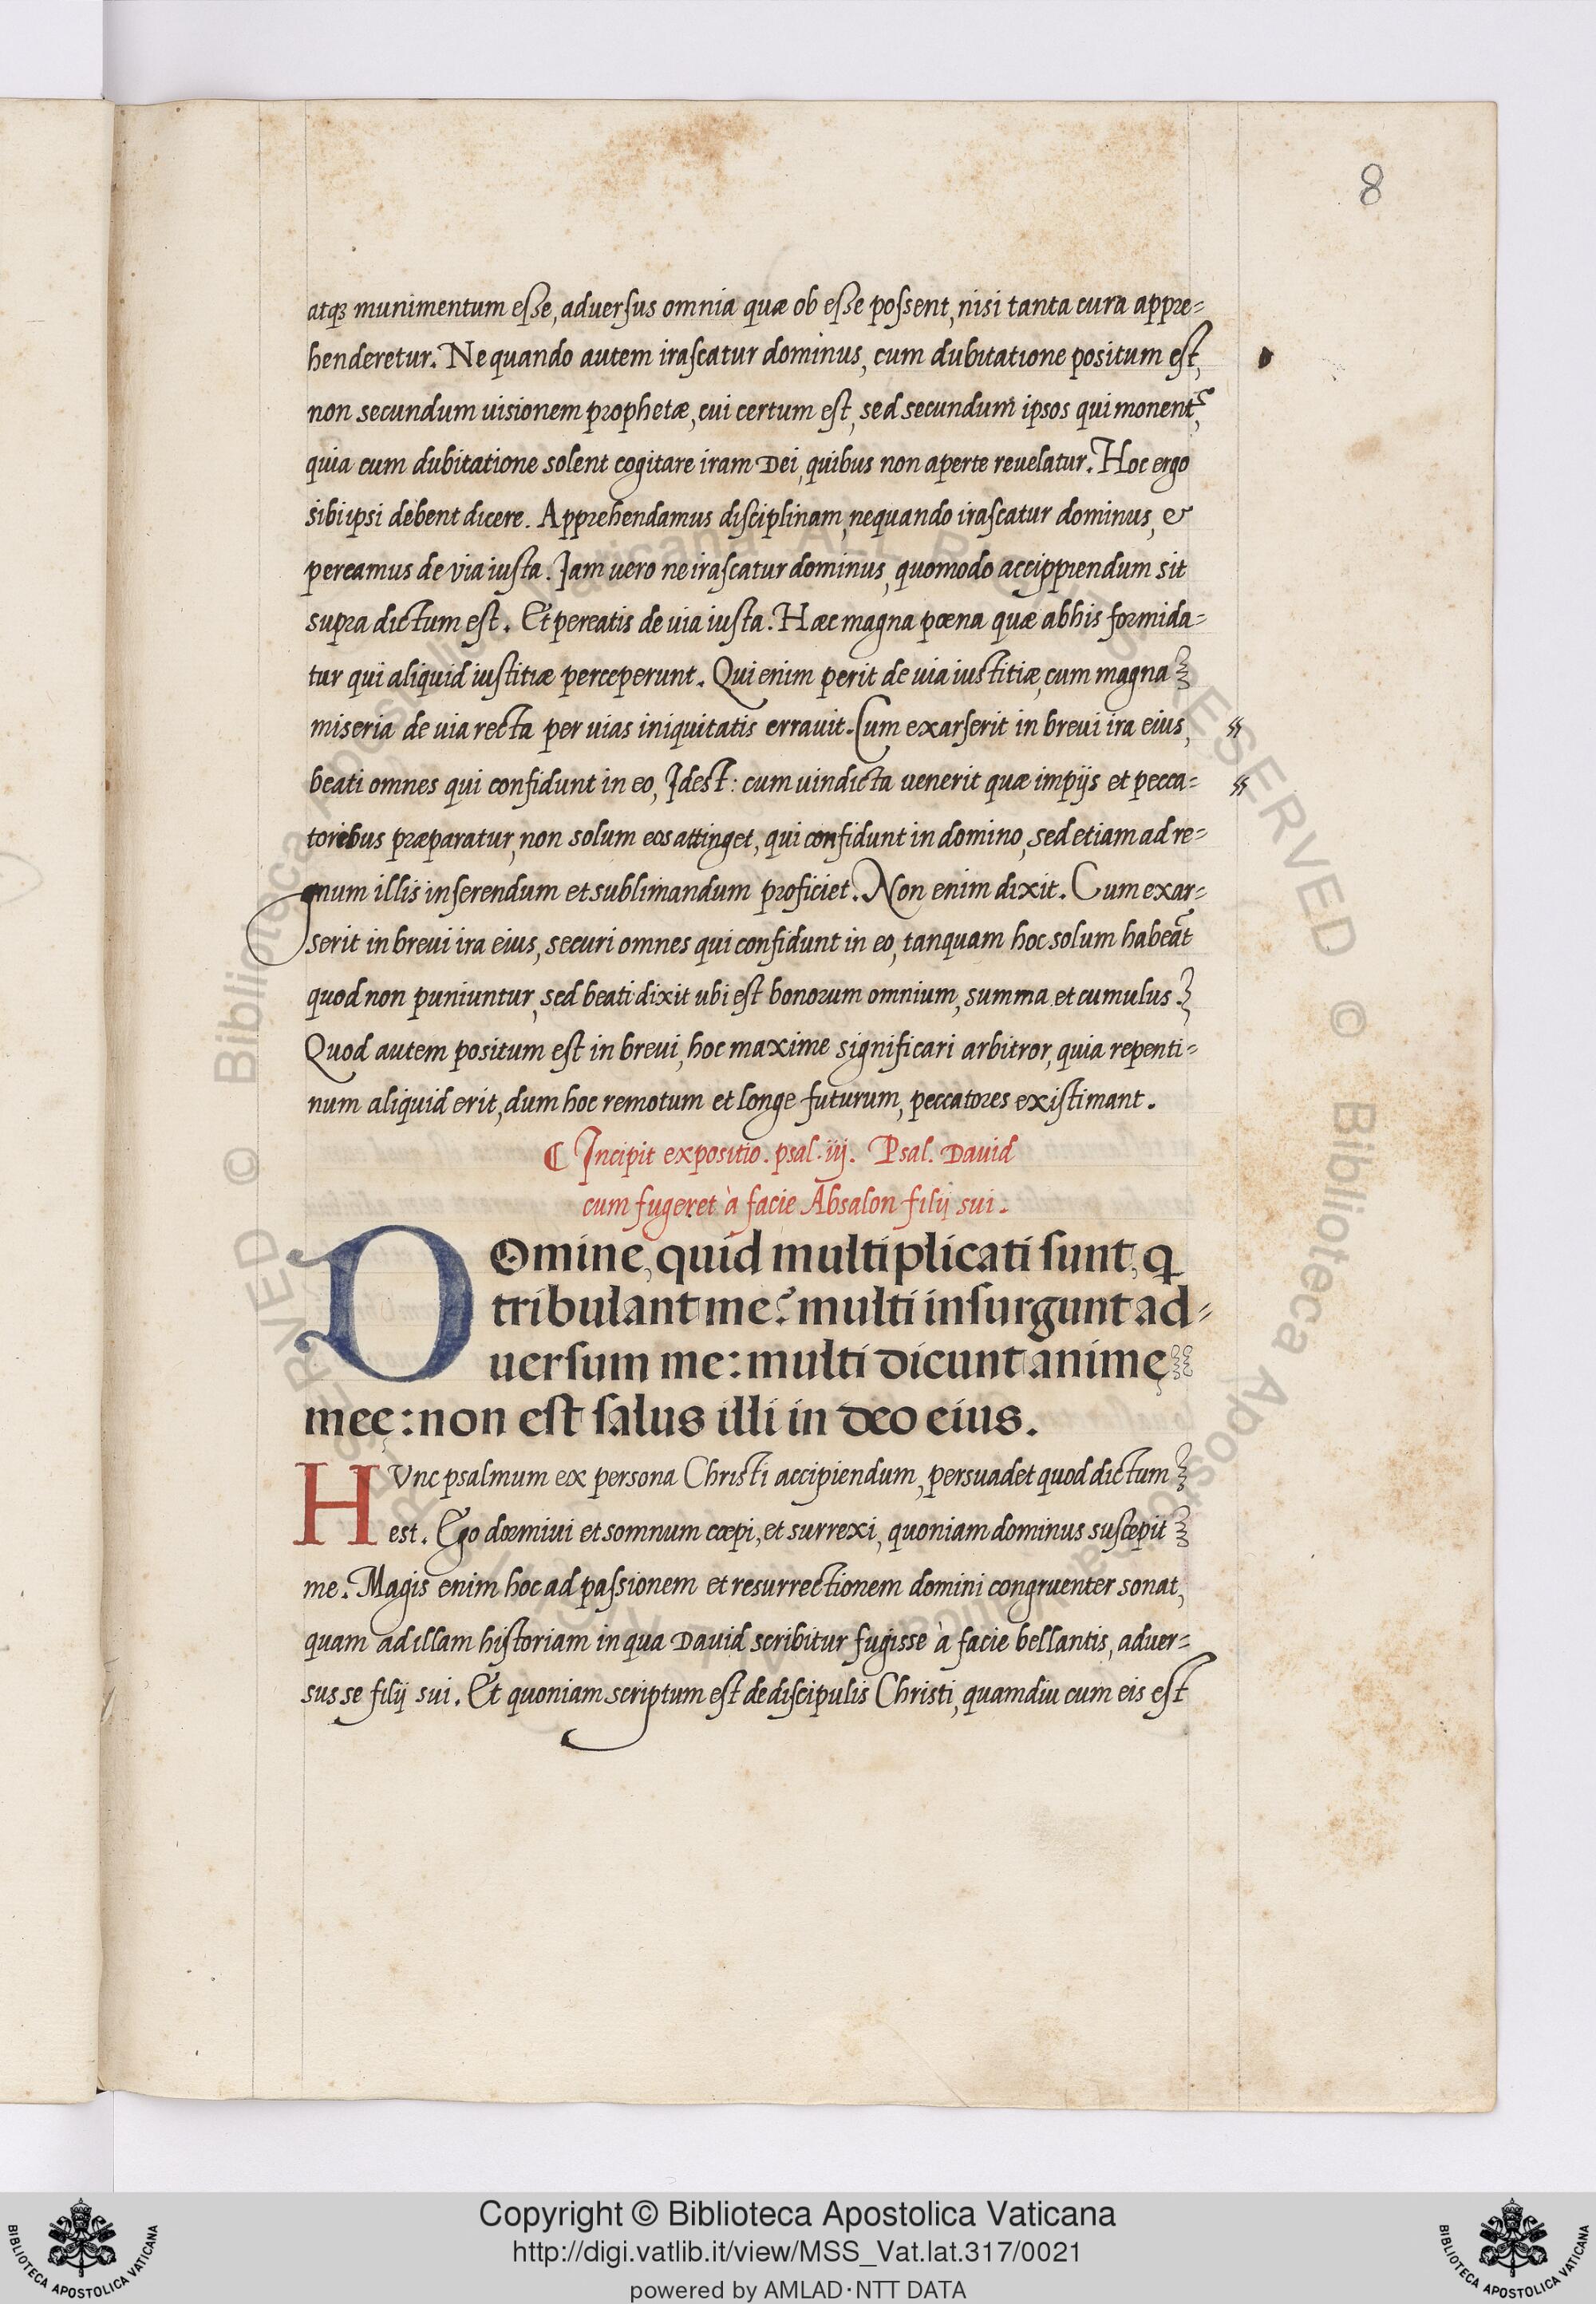 8
atq; munimentum esse, aduersus omnia quæ ob esse possent, nisi tanta cura appre=
henderetur. Ne quando autem irascatur dominus, cum dubitatione positum est,
non secundum uisionem prophetæ, cui certum est, sed secundum ipsos qui monent,
quia cum dubitatione solent cogitare iram Dei, quibus non aperte reuelatur. Hoc ergo
sibi ipsi debent dicere. Apprehendamus disciplinam, nequando irascatur dominus, &
pereamus de via iusta. Iam uero ne irascatur dominus, quomodo accippiendum sit
supra dictum est. Et pereatis de uia iusta. Hæc magna pœna quæ abhis formida=
tur qui aliquid iustitiæ perceperunt. Qui enim perit de uia iustitiæ, cum magna
miseria de uia recta per uias iniquitatis erravit. Cum exarserit in brevi ira eius,
beati omnes qui confidunt in eo, Idest: cum uindicta uenerit quæ impijs et pecca=
toribus præparatur, non solum eos attinget, qui confidunt in domino, sed etiam ad re=
gnum illis inserendum et sublimandum proficiet. Non enim dixit. Cum exar=
serit in brevi ira eius, securi omnes qui confidunt in eo, tanquam hoc solum habeāt
quod non puniuntur, sed beati dixit ubi est bonorum omnium, summa et cumulus.
Quod autem positum est in breui, hoc maxime significari arbitror, quia repenti=
num aliquid erit, dum hoc remotum et longe futurum, peccatores existimant.
¶ Incipit expositio. psal. iij. Psal. David
cum fugeret à facie Absalon filij sui.
DOmine, quid multiplicati sunt, q
tribulant me? multi insurgunt ad=
uersum me: multi dicunt animę
meę: non est salus illi in deo eius.
HVnc psalmum ex persona Christi accipiendum, persuadet quod dictum
est. Ego dormiui et somnum cœpi, et surrexi, quoniam dominus suscepit
me. Magis enim hoc ad passionem et resurrectionem domini congruenter sonat,
quam ad illam historiam in qua David scribitur fugisse à facie bellantis, aduer=
sus se filij sui. Et quoniam scriptum est de discipulis Christi, quamdiu cum eis est
© Biblioteca Apostolica Vaticana ALL RIGHTS RESERVED
Copyright © Biblioteca Apostolica Vaticana
http://digi.vatlib.it/view/MSS_Vat.lat.317/0021
powered by AMLAD·NTT DATA
BIBLIOTECA APOSTOLICA VATICANA
BIBLIOTECA APOSTOLICA VATICANA